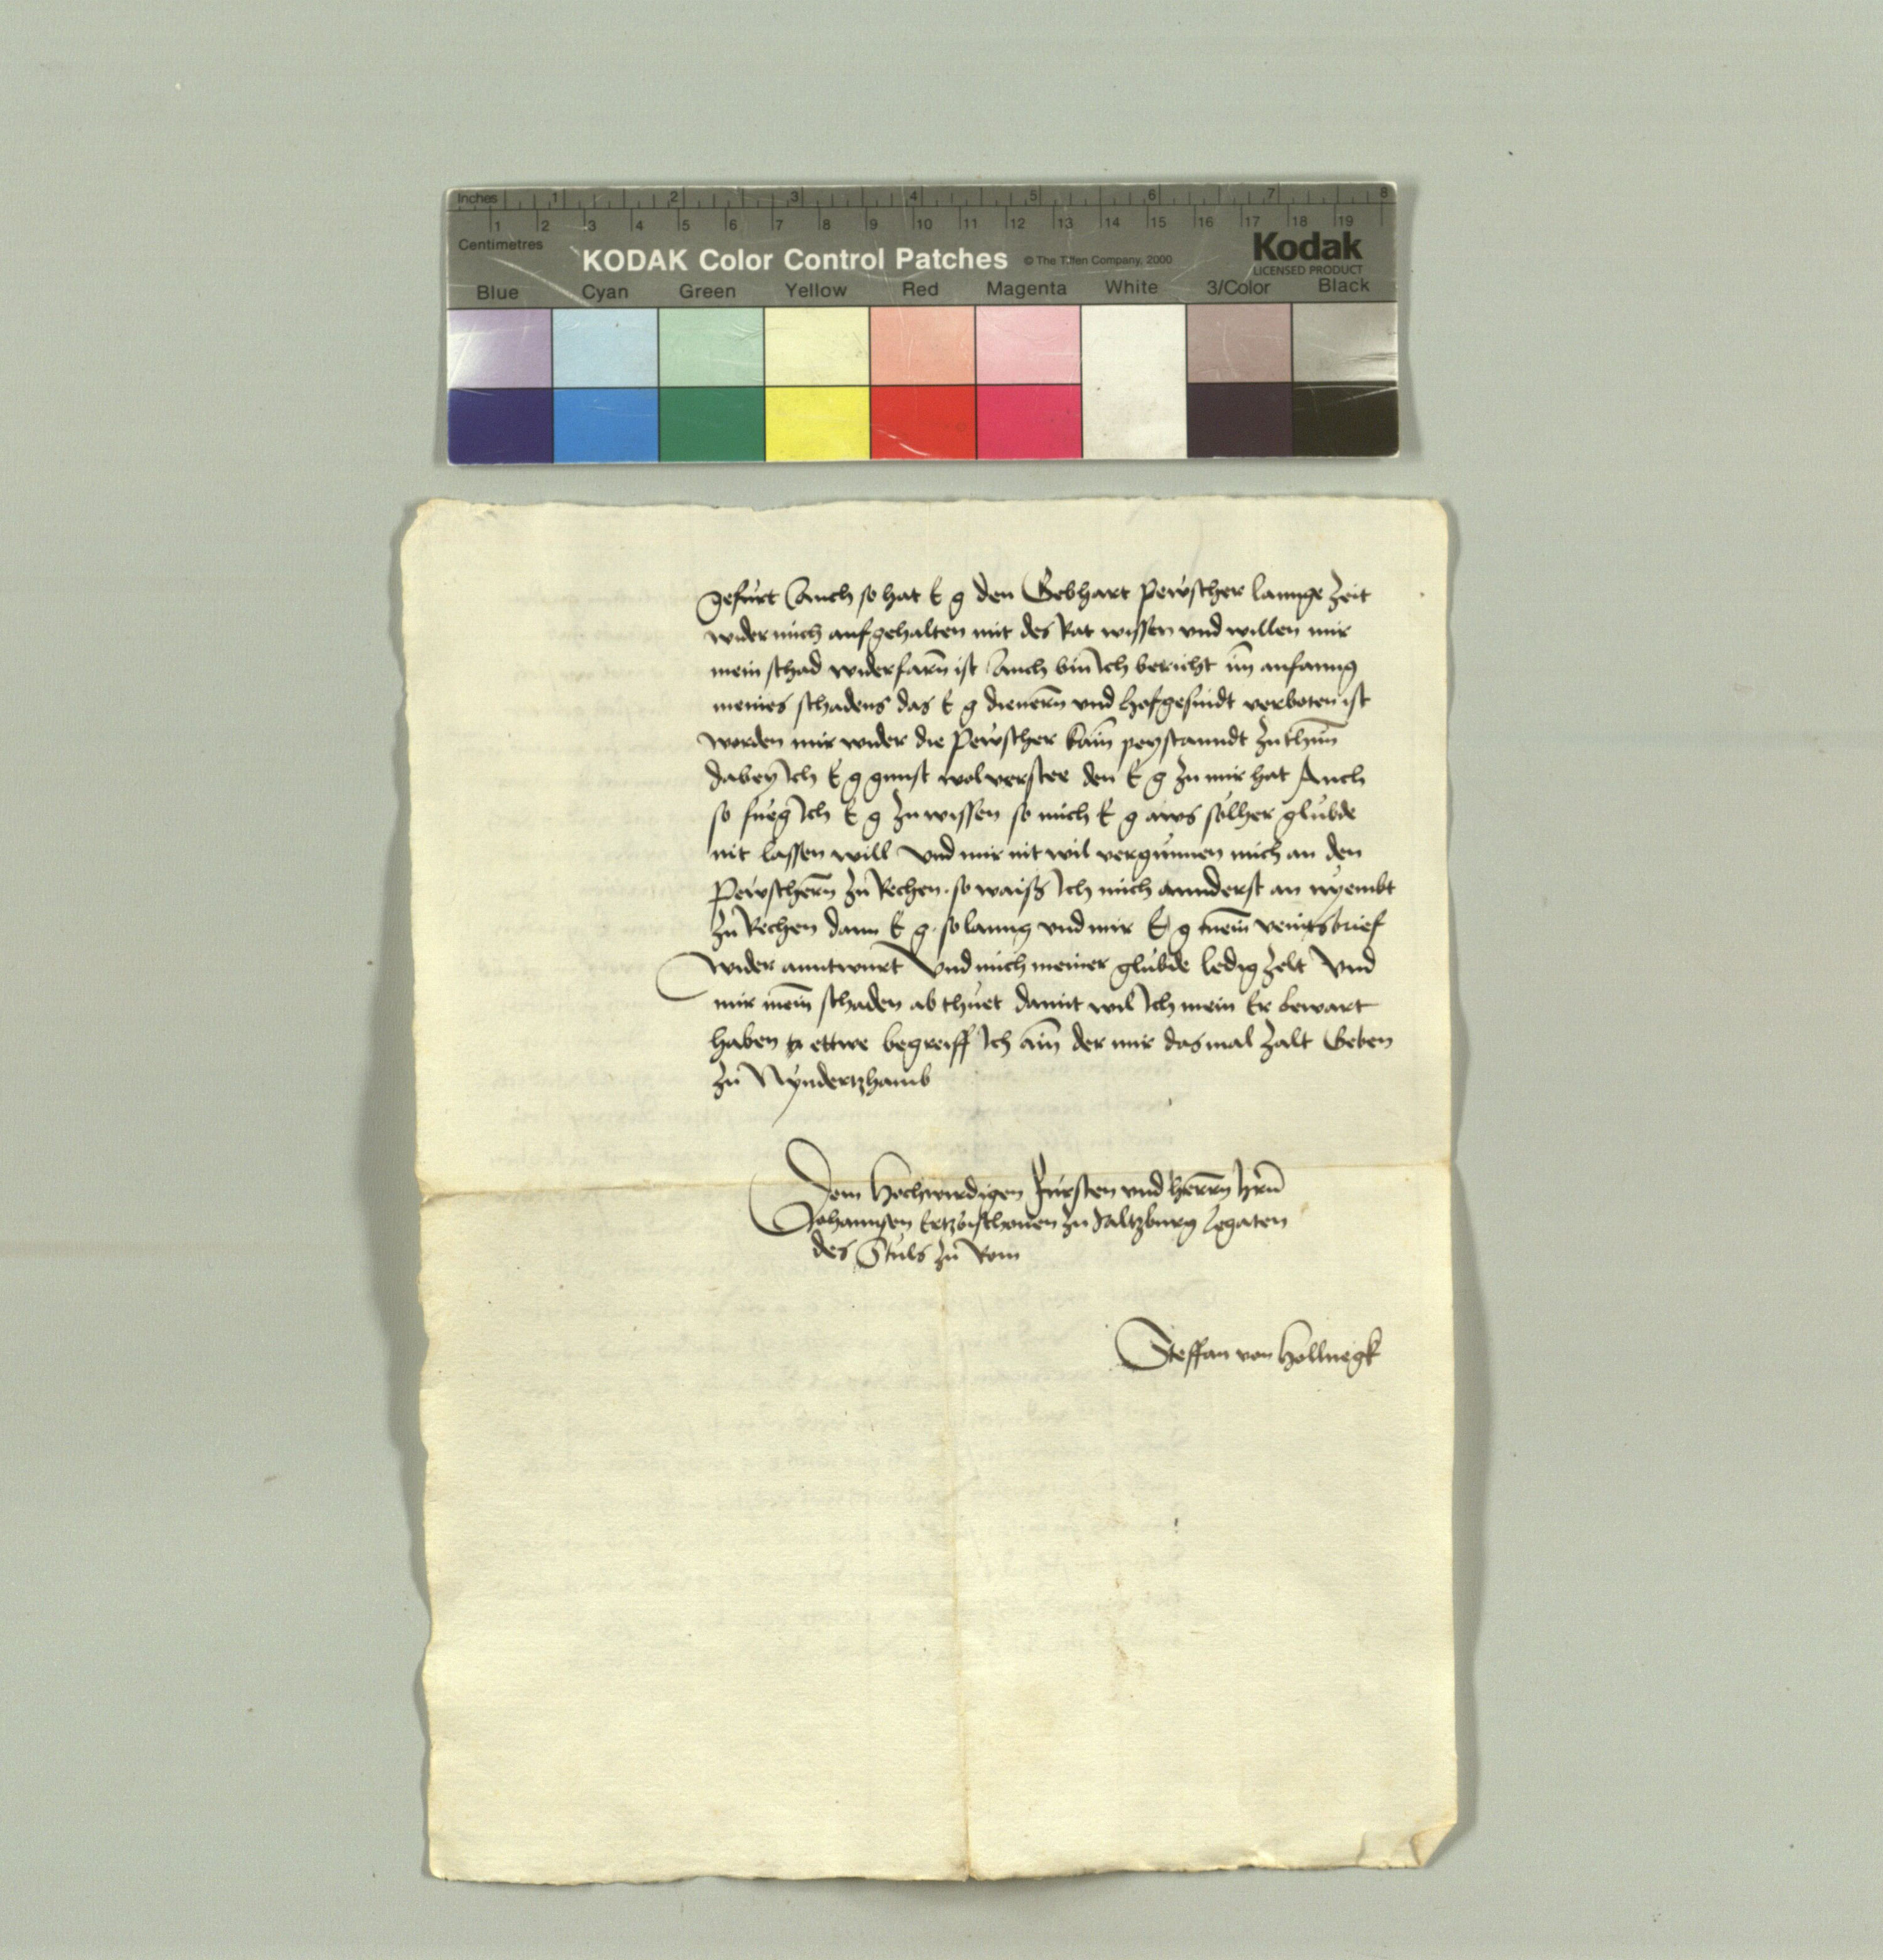 Inches 1 2 3 4 5 6 7 8
1 2 3 4 5 6 7 8 9 10 11 12 13 14 15 16 17 18 19
Centimetres
KODAK Color Control Patches © The Tiffen Company, 2000 Kodak
LICENSED PRODUCT
Blue Cyan Green Yellow Red Magenta White 3/Color Black
gefurt Auch so hat E g den Gebhart pewscher lannge zeit
wider mich aufgehalten mit des Rat wissen vnd willen mir
mein schad widerfarn̄ ist Auch bin Ich bericht im̄ anfanng
meines schadens das E g dienern̄ vnd hofgesindt verboten ist
worden mir wider die Pewscher kain̄ peystanndt zuthun̄
dabey Ich E g gunst wol verstee den E g zu mir hat Auch
so fueg Ich E g zuwissen so mich E g aws sölher glubde
nit lassen will vnd mir nit wil vergunnen mich an den
Pewschern̄ zu Rechen · so waiß Ich mich annderst an nyembt
zu Rechen dann E g · so lanng vnd mir E g mein̄ veintsbrief
wider anntwurt Vnd mich meiner glubde ledig zelt Vnd
mir mein̄ schaden ab thuet damit wil Ich mein Er bewart
haben ettwe begreiff Ich ain̄ der mir das mal zalt Geben
zu Nyndertzhaimb
Dem Hochwirdigen Fürsten vnd herrn̄ hrn̄
Johannsen Ertzbischouen zu Saltzburg Legaten
des Stuls zu Rom
Steffan von Hollnegk